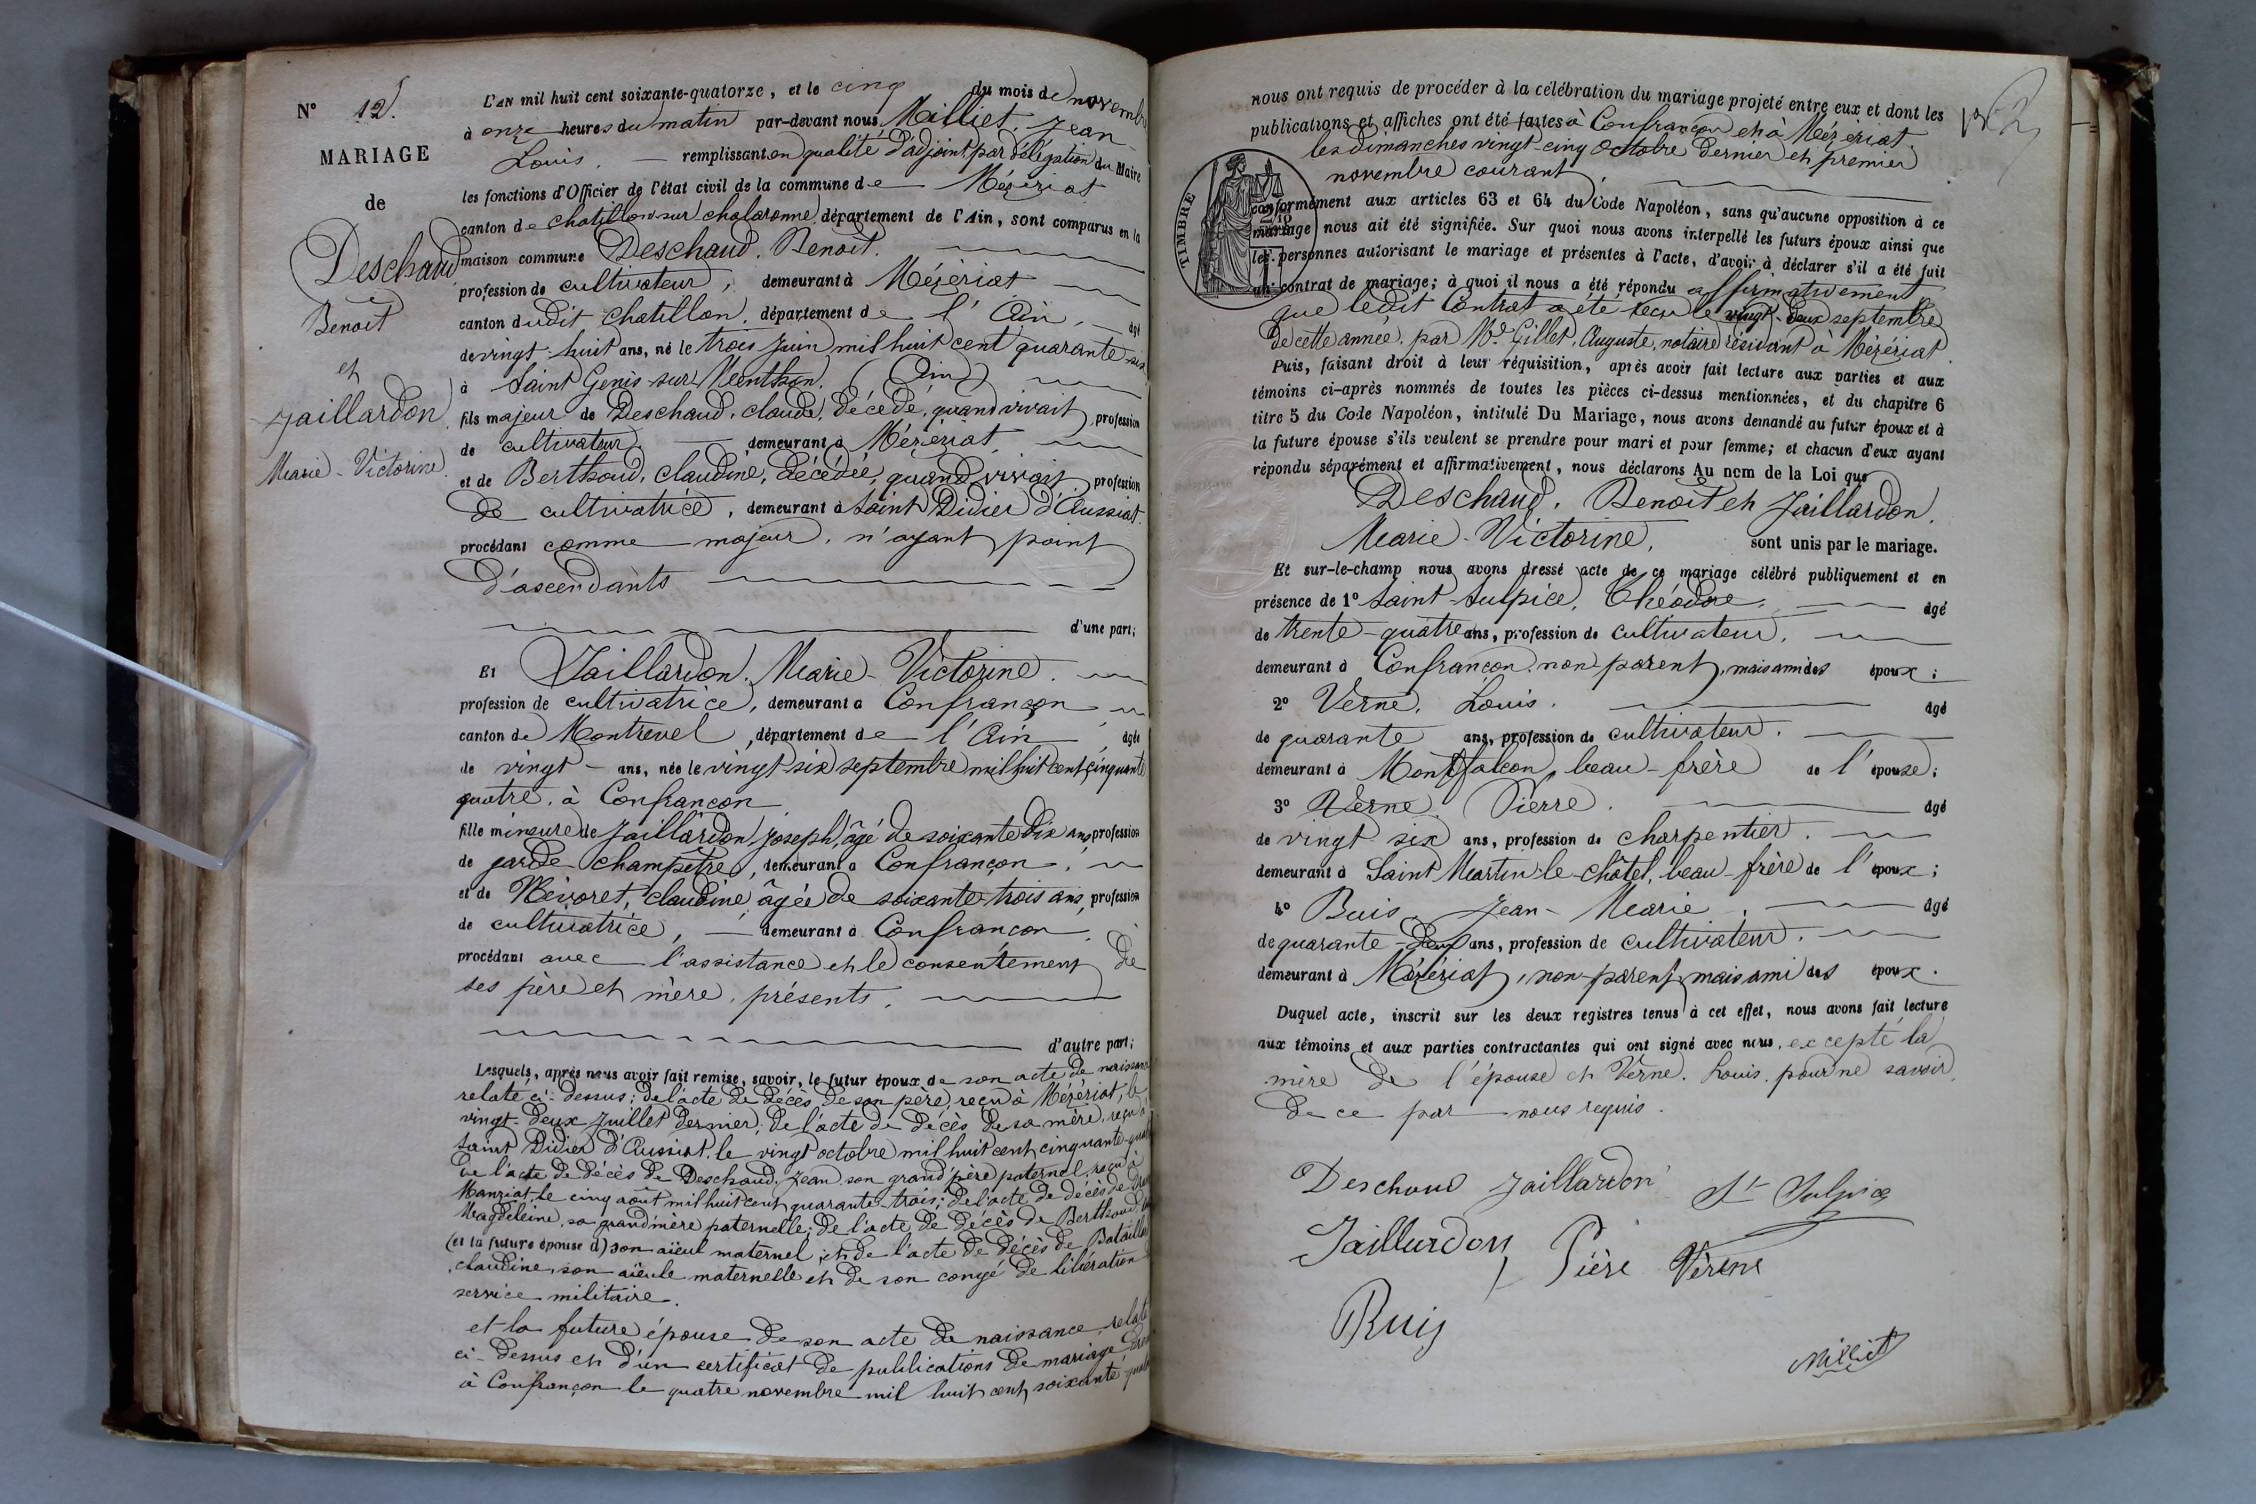 N° 12.
MARIAGE
de
Deschaud
Benoit
et
Jaillardon
Marie-Victorine
L'AN mil huit cent soixante-quatorze, et le cinq du mois de novembre
à onze heures du matin par-devant nous Milliet, Jean
Louis. remplissant en qualité d'adjoint par délégation du Maire
les fonctions d'Officier de l'état civil de la commune de Mézériat
canton de chatillon sur chalaronne, département de l'Ain, sont comparus en la
maison commune Deschaud, Benoit.
profession de cultivateur, demeurant à Mézériat
canton dudit chatillon, département de l'Ain, âgé
de vingt-huit ans, né le trois juin mil huit cent quarante-six
à Saint Genis sur Menthon. (Ain)
fils majeur de Deschaud, claude, décédé, quand vivait profession
de cultivateur, demeurant à Mézériat
et de Berthoud, claudine, décédée, quand vivait profession
de cultivatrice, demeurant à Saint Didier d'Aussiat.
procédant comme majeur, n'ayant point
d'ascendants
d'une part;
Et Jaillardon, Marie-Victorine.
profession de cultivatrice, demeurant à Confrançon
canton de Montrevel, département de l'Ain, âgée
de vingt ans, née le vingt six septembre mil huit cent cinquante
quatre, à Confrançon
fille mineure de Jaillardon, Joseph, âgé de soixante dix ans, profession
de garde champêtre, demeurant à Confrançon,
et de Névoret, claudine, âgée de soixante-trois ans, profession
de cultivatrice, demeurant à Confrançon,
procédant avec l'assistance et le consentement de
ses père et mère, présents.
d'autre part;
Lesquels, après nous avoir fait remise, savoir, le futur époux de son acte de naissance
relaté ci-dessus; de l'acte de décès de son père, reçu à Mézériat, le
vingt-deux juillet dernier; de l'acte de décès de sa mère, reçu à
Saint Didier d'Aussiat, le vingt octobre mil huit cent cinquante
de l'acte de décès de Deschaud, Jean son grand'père paternel, reçu à
Manziat, le cinq août mil huit cent quarante-trois; de l'acte de décès de
Magdeleine, sa grand'mère paternelle; de l'acte de décès de Berthoud,
(et la future épouse d) son aïeul maternel, et de l'acte de décès de Bataillard
claudine, son aïeule maternelle et de son congé de libération
service militaire.
et la future épouse de son acte de naissance, relaté
ci-dessus et d'un certificat de publications de mariage
à Confrançon le quatre novembre mil huit cent soixante
nous ont requis de procéder à la célébration du mariage projeté entre eux et dont les
publications et affiches ont été faites à Confrançon et à Mézériat.
les dimanches vingt-cinq Octobre dernier et premier
novembre courant
TIMBRE
conformément aux articles 63 et 64 du Code Napoléon, sans qu'aucune opposition à ce
mariage nous ait été signifiée. Sur quoi nous avons interpellé les futurs époux ainsi que
les personnes autorisant le mariage et présentes à l'acte, d'avoir à déclarer s'il a été fait
un contrat de mariage; à quoi il nous a été répondu affirmativement
que ledit Contrat a été reçu le vingt-deux septembre
de cette année, par Me Gillet, Auguste, notaire résidant à Mézériat.
Puis, faisant droit à leur réquisition, après avoir fait lecture aux parties et aux
témoins ci-après nommés de toutes les pièces ci-dessus mentionnées, et du chapitre 6
titre 5 du Code Napoléon, intitulé Du Mariage, nous avons demandé au futur époux et à
la future épouse s'ils veulent se prendre pour mari et pour femme; et chacun d'eux ayant
répondu séparément et affirmativement, nous déclarons Au nom de la Loi que
Deschaud, Benoit et Jaillardon.
Marie-Victorine. sont unis par le mariage.
Et sur-le-champ nous avons dressé acte de ce mariage célébré publiquement et en
présence de 1° Saint-Sulpice, Théodore, âgé
de trente-quatre ans, profession de cultivateur,
demeurant à Confrançon, non parent, mais ami des époux;
2° Verne, Louis. âgé
de quarante ans, profession de cultivateur.
demeurant à Montfalcon, beau-frère de l'épouse;
3° Verne, Pierre. âgé
de vingt six ans, profession de charpentier.
demeurant à Saint Martin-le-châtel, beau-frère de l'époux;
4° Buis, Jean-Marie. âgé
de quarante-deux ans, profession de cultivateur.
demeurant à Mézériat, non-parent, mais ami des époux.
Duquel acte, inscrit sur les deux registres tenus à cet effet, nous avons fait lecture
aux témoins et aux parties contractantes qui ont signé avec nous, excepté la
mère de l'épouse et Verne, Louis, pour ne savoir,
de ce par nous requis.
Deschaud Jaillardon St Sulpice
Jaillardon Pière Vèrne
Buis
Milliet